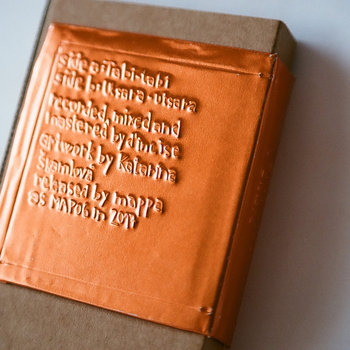 side a: Tabi-tabi
side b: Utsara-utsara
recorded, mixed and
mastered by d'incise
artwork by Katarina
Svamlova
released by mappa
as MAP06 in 2017